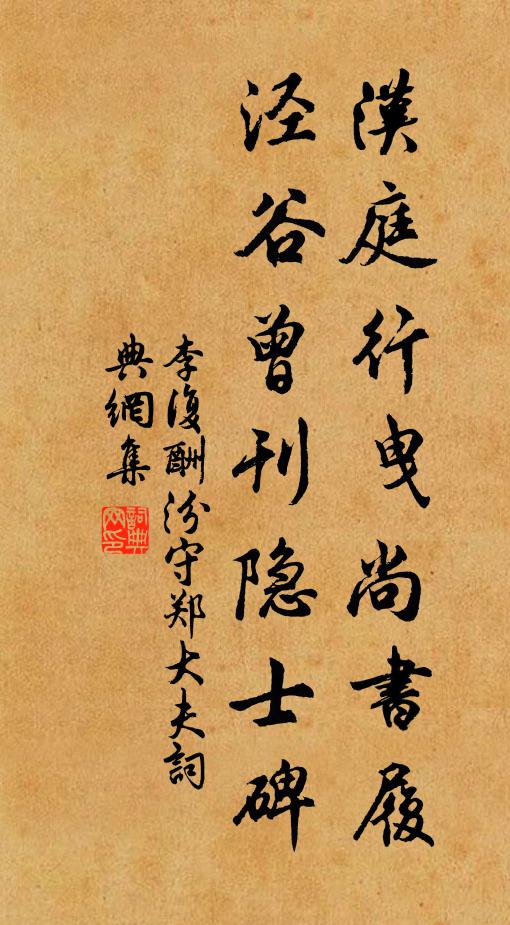 漢庭行曳尚書履
泾谷曾刊隐士碑
李復酬汾守郑大夫詞
典網集
詞典網印